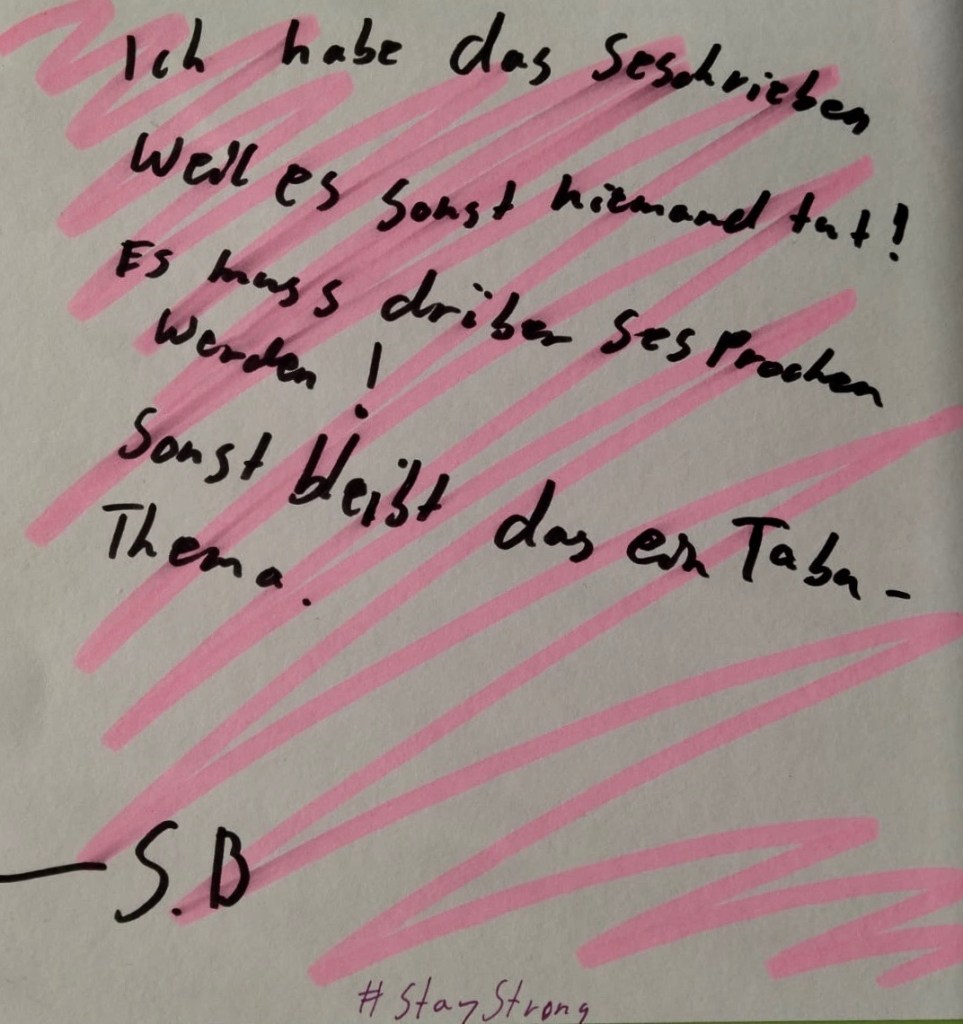 Ich habe das geschrieben
Weil es sonst niemand tut!
Es muss drüber gesprochen
werden!
Sonst bleibt das ein Tabu-
Thema.
S.B
#StayStrong